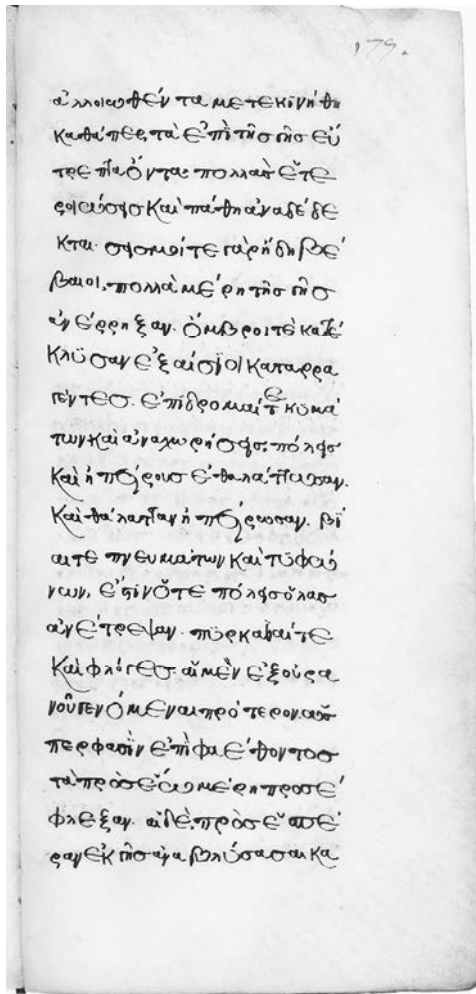 175.
ἀλλοιωθέν τα μετεκινήθη
καθάπερ τὰ ἐπὶ τῆς γῆς εὔ
τρεπτα ὄντα πολλὰς ἑτε
ροιώσεις καὶ πάθη ἀναδέδε
κται. σεισμοί τε γὰρ ἤδη βέ
βαιοι, πολλὰ μέρη τῆς γῆς
ἀνέρρηξαν. ὄμβροι τὲ κατέ
κλϋσαν ἐξαίσϊοι καταρρα
γέντες. ἐπιδρομαί τε κυμά
των καὶ ἀναχωρήσεις. πόλεις
καὶ ἠπείρους ἐθαλάττωσαν.
καὶ θάλατταν ἠπείρωσαν. βί
αι τε πνευμάτων καὶ τυφώ
νων, ἐπὶν ὅτε πόλεις ὅλας
ἀνέτρεψαν. πϋρκαβαί τε
καὶ φλόγες. αἱ μὲν ἐξ οὐρα
νοῦ γενόμεναι πρότερον. ὥσ
περ φασὶν ἐπὶ φαέθοντος
τὰ πρὸς ἕω μέρη προσέ
φλεξαν. αἱ δὲ. πρὸς ἑσπέ
ραν ἐκ γῆς ἀναβλύσασαι κα